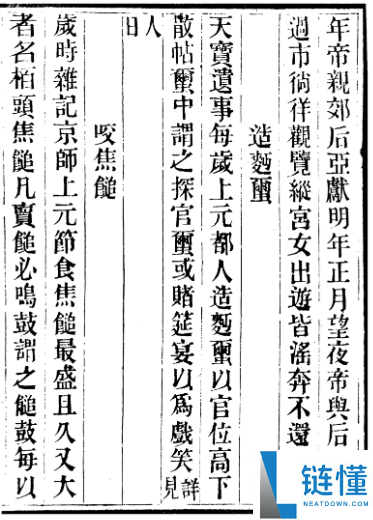 年帝親郊后亞獻明年正月望夜帝與后
過市徜徉觀覽縱宮女出遊皆滛奔不還
造麪蠒
天寶遺事每歲上元都人造麪蠒以官位高下
散帖蠒中謂之探官蠒或賭筵宴以爲戲笑詳見
人日
咬焦䭔
歲時雜記京師上元節食焦䭔最盛且久又大
者名柏頭焦䭔凡賣䭔必鳴鼓謂之䭔鼓每以
链懂
NEATDOWN.COM